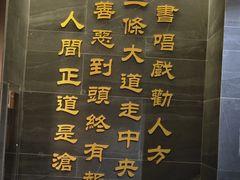 書唱戲勸人方
一條大道走中央
善惡到頭終有報
人間正道是滄